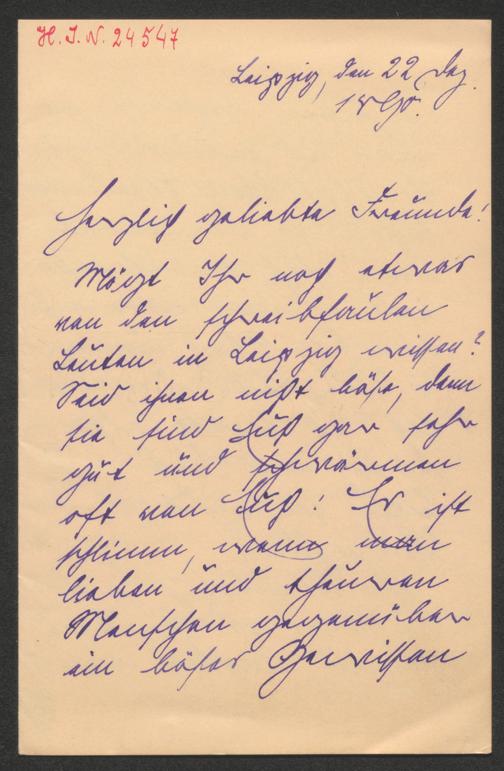 H. I. N. 24547
Leipzig, den 22 Dez.
1890.
Herzlich geliebte Freunde!
Mögt Ihr noch etwas
von den schreibfaulen
Leuten in Leipzig wissen?
Seid ihnen nicht böse, denn
sie sind Euch gar sehr
gut und schwärmen
oft von Euch! Es ist
schlimm, wenn man
lieben und theuren
Menschen gegenüber
ein böses Gewissen